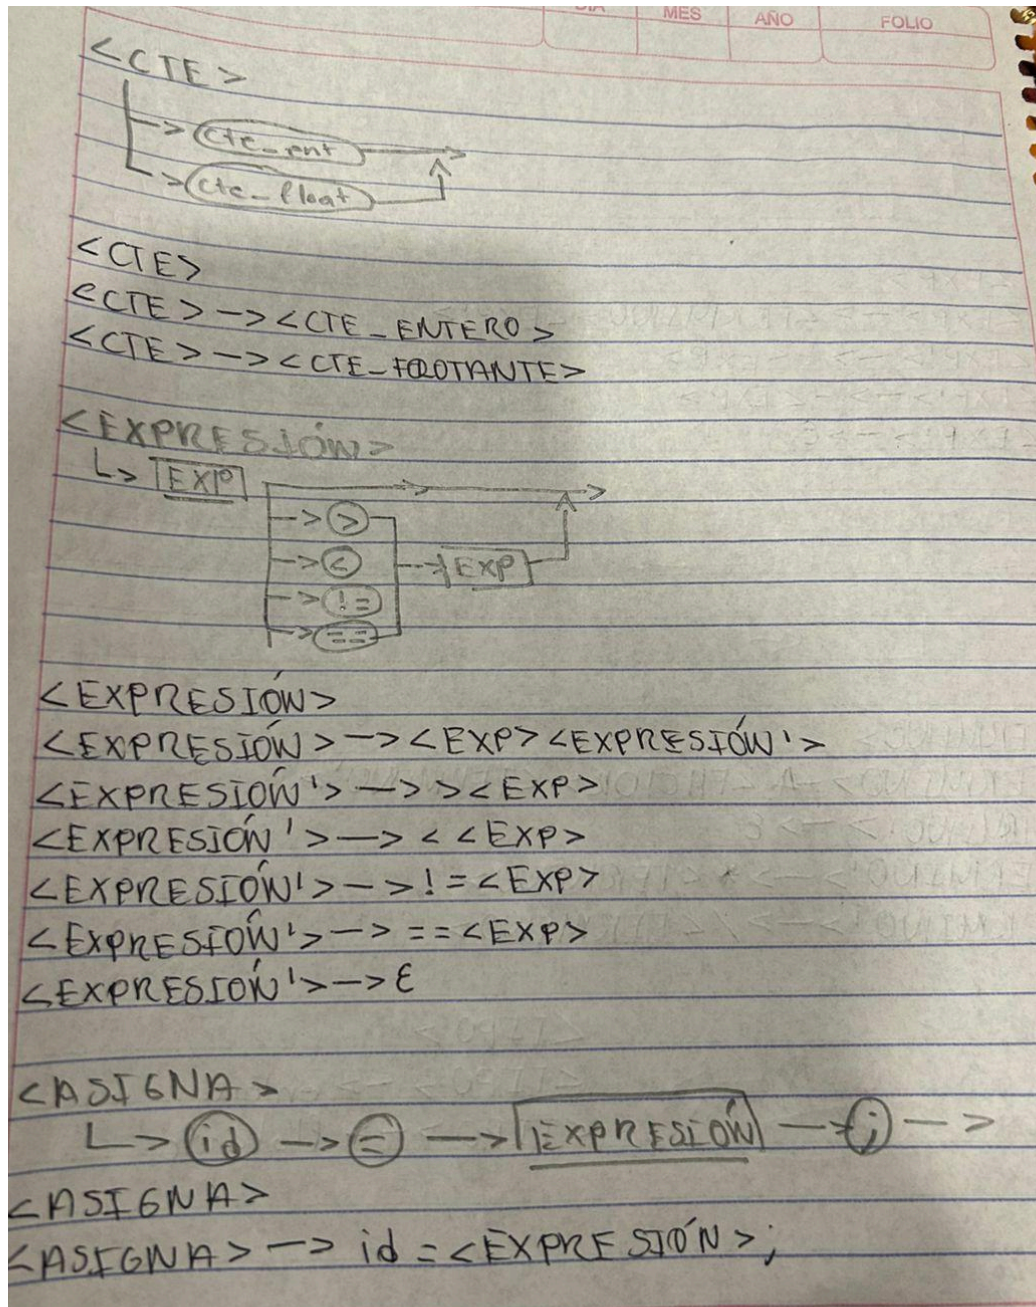 DIA MES AÑO FOLIO
<CTE>
-> cte_ent ->
-> cte_float
<CTE>
<CTE> -> <CTE_ENTERO>
<CTE> -> <CTE_FLOTANTE>
<EXPRESIÓN>
-> EXP ->
-> >
-> < -> EXP
-> !=
-> ==
<EXPRESIÓN>
<EXPRESIÓN> -> <EXP> <EXPRESIÓN'>
<EXPRESIÓN'> -> > <EXP>
<EXPRESIÓN'> -> < <EXP>
<EXPRESIÓN'> -> != <EXP>
<EXPRESIÓN'> -> == <EXP>
<EXPRESIÓN'> -> ε
<ASIGNA>
-> id -> = -> EXPRESIÓN -> ; ->
<ASIGNA>
<ASIGNA> -> id = <EXPRESIÓN>;